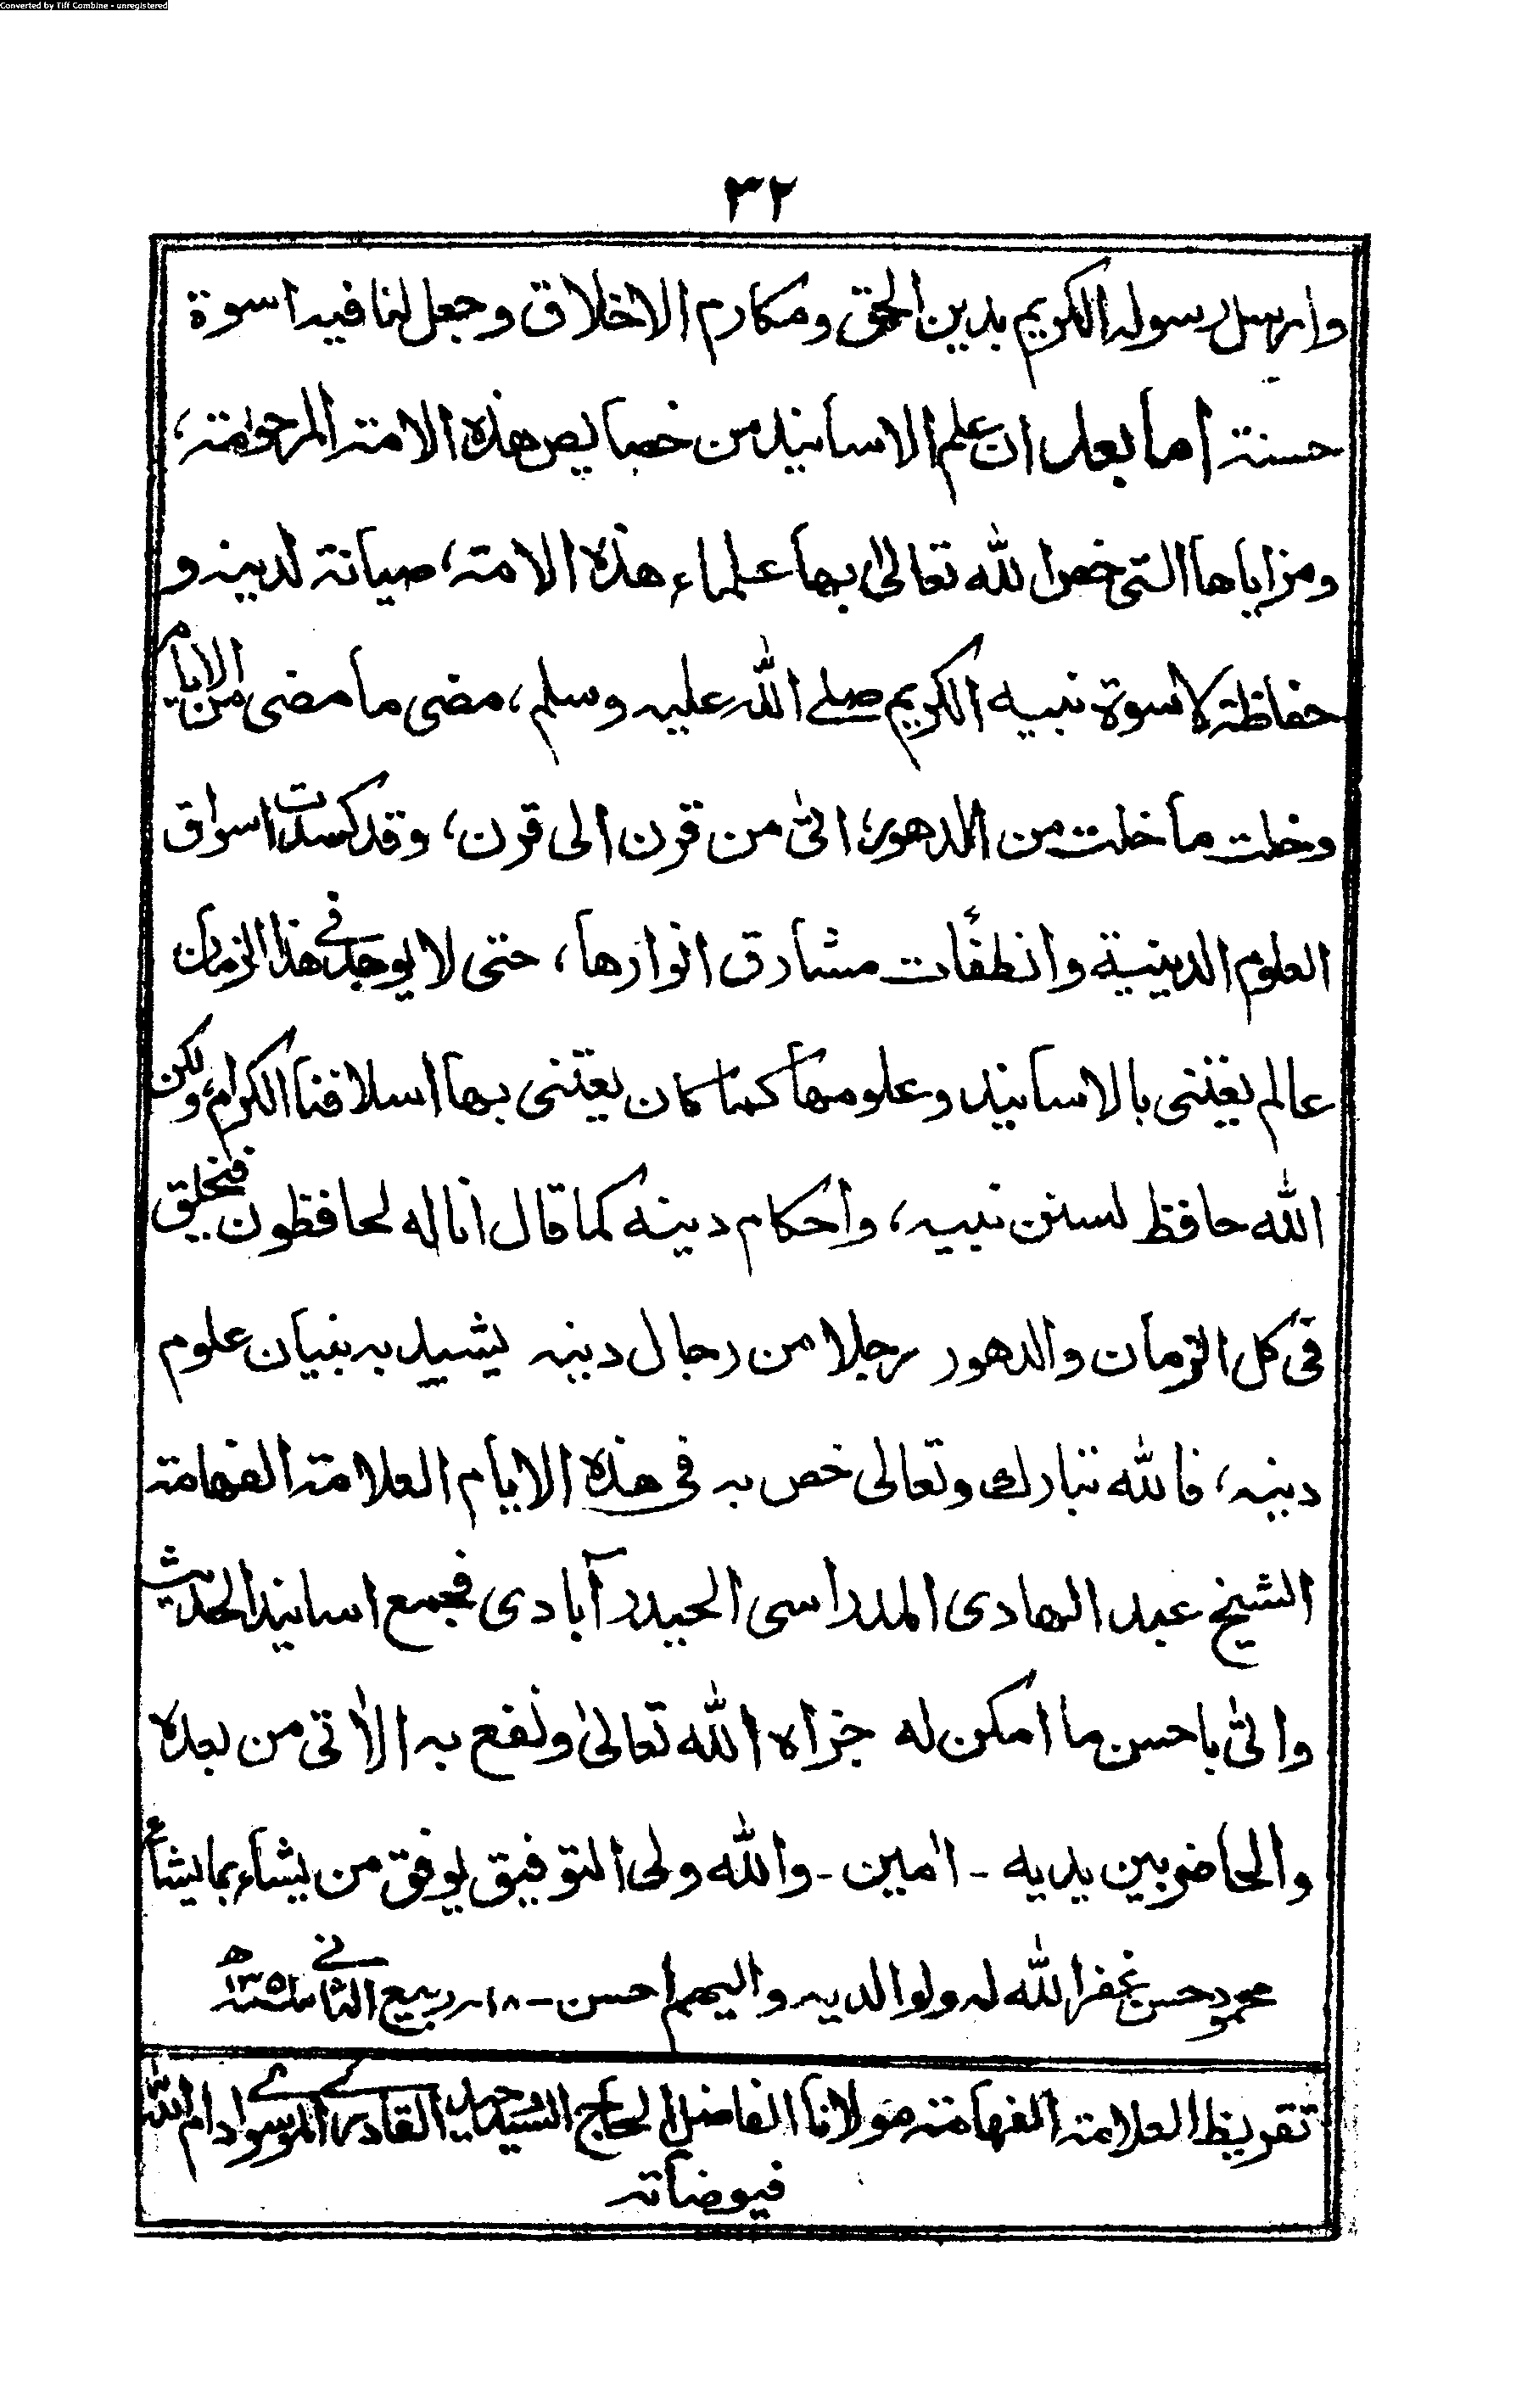 Converted by Tiff Combine - unregistered
٣٢
وارسل رسوله الكريم بدين الحق ومكارم الاخلاق وجعل لنا فيه اسوة
حسنة اما بعد ان علم الاسانيد من خصايص هذه الامة المرحومة،
ومزاياها التى خص الله تعالىٰ بها علماء هذه الامة، صيانة لدينه و
حفاظة لاسوة نبيه الكريم صلے الله عليه وسلم، مضى ما مضى من الايام
وخلت ما خلت من الدهور، اتىٰ من قرن الى قرن، وقد كسدت اسواق
العلوم الدينية وانطفأت مشارق انوارها، حتى لا يوجد فى هذا الزمان
عالم يعتنى بالاسانيد وعلومها كما كان يعتنى بها اسلافنا الكرام، ولكن
الله حافظ لسنن نبيه، واحكام دينه كما قال انا له لحافظون فيخلق
فى كل الزمان والدهور رجلا من رجال دينه يشيد به بنيان علوم
دينه، فالله تبارك وتعالى خص به فى هذه الايام العلامة الفهامة
الشيخ عبد الهادى المدراسى الحيدرآبادى فجمع اسانيد الحديث
واتىٰ باحسن ما امكن له جزاه الله تعالىٰ ونفع به الاٰتى من بعده
والحاضر بين يديه - اٰمين - والله ولى التوفيق يوفق من يشاء بما يشاء
محمود حسن غفر الله له ولوالديه واليهم احسن - ١٨ ربيع الثانے سنة ١٣٥١ھ
تقريظ العلامة الفهامة مولانا الفاضل الحاج السيد القادرى الموسوى ادام الله
فيوضاته